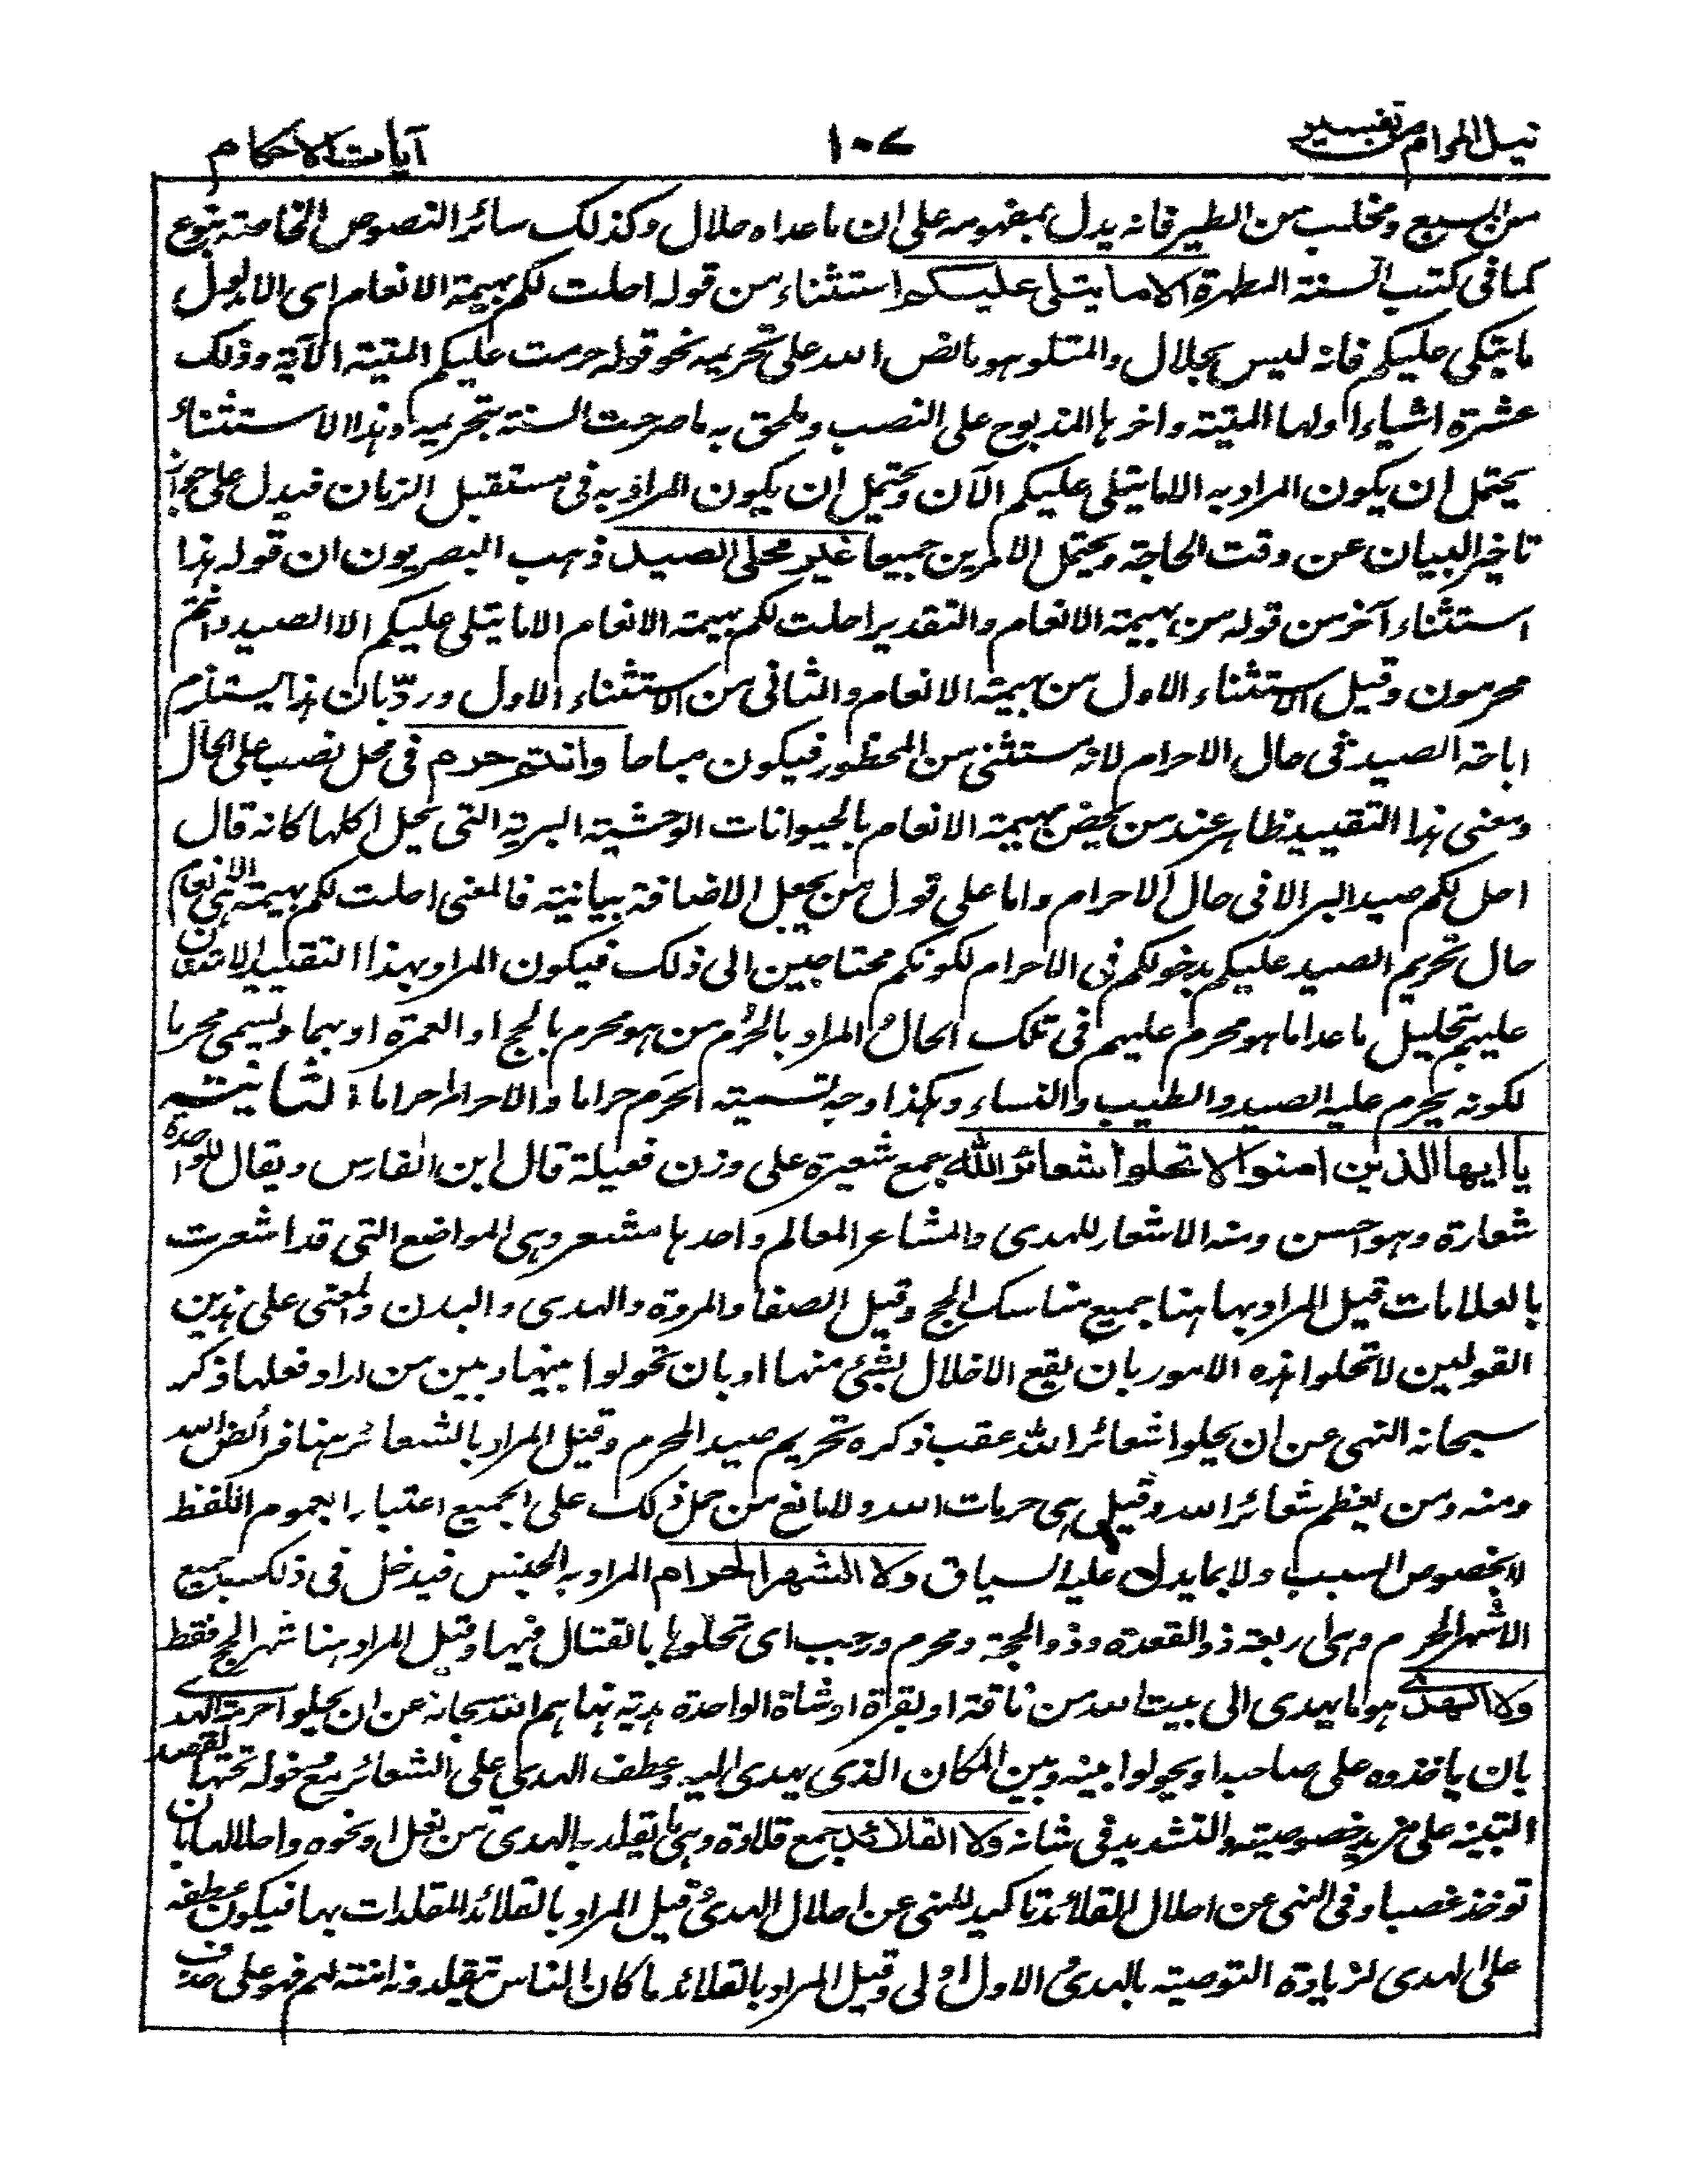 نيل المرام من تفسير ١٠٧ آيات الاحكام
من السبع ومخلب من الطير فانه يدل بمفهومه على ان ما عداه حلال وكذلك سائر النصوص الخاصة بنوع
كما فى كتب السنة المطهرة الا ما يتلى عليكم استثناء من قوله احلت لكم بهيمة الانعام اى الا مدلول
ما يتلى عليكم فانه ليس بحلال والمتلو هو ما نص الله على تحريمه نحو قوله حرمت عليكم الميتة الآية وذلك
عشرة اشياء اولها الميتة واخرها المذبوح على النصب ويلحق به ما صرحت السنة بتحريمه وهذا الاستثناء
يحتمل ان يكون المراد به الا ما يتلى عليكم الآن ويحتمل ان يكون المراد به فى مستقبل الزمان فيدل على جواز
تاخير البيان عن وقت الحاجة ويحتمل الامرين جميعا غير محلى الصيد ذهب البصريون ان قوله هذا
استثناء آخر من قوله من بهيمة الانعام والتقدير احلت لكم بهيمة الانعام الا ما يتلى عليكم الا الصيد وانتم
محرمون وقيل الاستثناء الاول من بهيمة الانعام والثانى من الاستثناء الاول وردّ بان هذا يستلزم
اباحة الصيد فى حال الاحرام لانه مستثنى من المحظور فيكون مباحا وانتم حرم فى محل نصب على الحال
ومعنى هذا التقييد ظاهر عند من يخص بهيمة الانعام بالحيوانات الوحشية البرية التى يحل اكلها كانه قال
احل لكم صيد البر الا فى حال الاحرام واما على قول من يجعل الاضافة بيانية فالمعنى احلت لكم بهيمة هى الانعام
حال تحريم الصيد عليكم بدخولكم فى الاحرام لكونكم محتاجين الى ذلك فيكون المراد بهذا التقييد الامتنان
عليهم بتحليل ما عدا ما هو محرم عليهم فى تلك الحال والمراد بالحُرُم من هو محرم بالحج او العمرة او بهما ويسمى محرما
لكونه يحرم عليه الصيد والطيب والنساء وهكذا وجه تسمية الحَرَم حراما والاحرام احراما الثانية
يا ايها الذين امنوا لا تحلوا شعائر الله جمع شعيرة على وزن فعيلة قال ابن الفارس ويقال للواحدة
شعارة وهو احسن ومنه الاشعار للهدى والمشاعر المعالم واحدها مشعر وهى المواضع التى قد اشعرت
بالعلامات قيل المراد بها هنا جميع مناسك الحج وقيل الصفا والمروة والهدى والبدن والمعنى على هذين
القولين لا تحلوا هذه الامور بان يقع الاخلال بشئ منها او بان تحولوا بينها وبين من اراد فعلها ذكر
سبحانه النهى عن ان يحلوا شعائر الله عقب ذكره تحريم صيد المحرم وقيل المراد بالشعائر هنا فرائض الله
ومنه ومن يعظم شعائر الله وقيل هى حرمات الله ولا مانع من حمل ذلك على الجميع اعتبارا بعموم اللفظ
لا بخصوص السبب ولا بما يدل عليه السياق ولا الشهر الحرام المراد به الجنس فيدخل فى ذلك جميع
الاشهر الحرم وهى اربعة ذو القعدة وذو الحجة ومحرم ورجب اى تحلوها بالقتال فيها وقيل المراد هنا شهر الحج فقط
ولا الهدى هو ما يهدى الى بيت الله من ناقة او بقرة او شاة الواحدة هدية نهاهم الله سبحانه عن ان يحلوا حرمة الهدى
بان ياخذوه على صاحبه او يحولوا بينه وبين المكان الذى يهدى اليه وعطف الهدى على الشعائر مع دخوله تحتها لقصد
التنبيه على مزيد خصوصيته والتشديد فى شانه ولا القلائد جمع قلادة وهى ما يقلد به الهدى من نعل او نحوه واحلالها بان
توخذ غصبا وفى النهى عن احلال القلائد تاكيد للنهى عن احلال الهدى وقيل المراد بالقلائد المقلدات بها فيكون عطفه
على الهدى لزيادة التوصية بالهدى والاول اولى وقيل المراد بالقلائد ما كان الناس تتقلدونه امنة لهم فهو على حذف